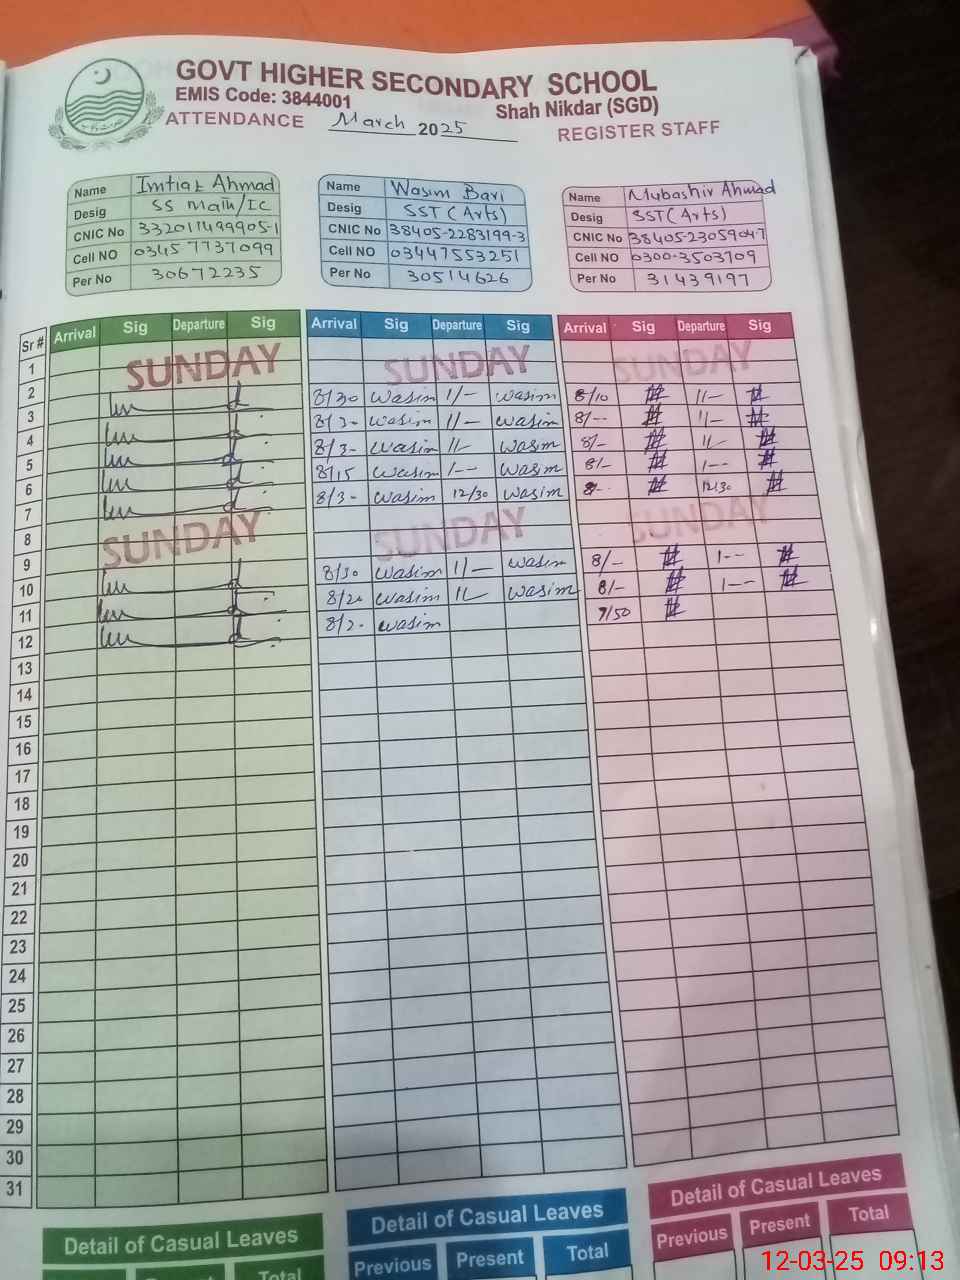 GOVT HIGHER SECONDARY SCHOOL
EMIS Code: 3844001
Shah Nikdar (SGD)
ATTENDANCE March 2025 REGISTER STAFF
Name Imtiaz Ahmad
Desig SS Math/IC
CNIC No 332011499905-1
Cell NO 03457737099
Per No 30672235
Name Wasim Bari
Desig SST (Arts)
CNIC No 38405-2283199-3
Cell NO 03447553251
Per No 30514626
Name Mubashir Ahmad
Desig SST (Arts)
CNIC No 38405-2305904-7
Cell NO 0300-3503709
Per No 31439197
Sr # Arrival Sig Departure Sig Arrival Sig Departure Sig Arrival Sig Departure Sig
1
2 SUNDAY SUNDAY SUNDAY
3 8/30 Wasim 11/- Wasim 8/10 11/-
4 8/3- Wasim 11/- Wasim 8/-- 11/-
5 8/3- Wasim 11/- Wasim 8/- 11/-
6 8/15 Wasim 1-- Wasim 8/- 1--
7 8/3- Wasim 12/30 Wasim 8-- 12/30
8
9 SUNDAY SUNDAY SUNDAY
10 8/30 Wasim 11/- Wasim 8/- 1--
11 8/20 Wasim 11/- Wasim 8/- 1--
12 8/2- Wasim 7/50
13
14
15
16
17
18
19
20
21
22
23
24
25
26
27
28
29
30
31
Detail of Casual Leaves Detail of Casual Leaves Detail of Casual Leaves
Total Previous Present Total Previous Present Total
12-03-25 09:13